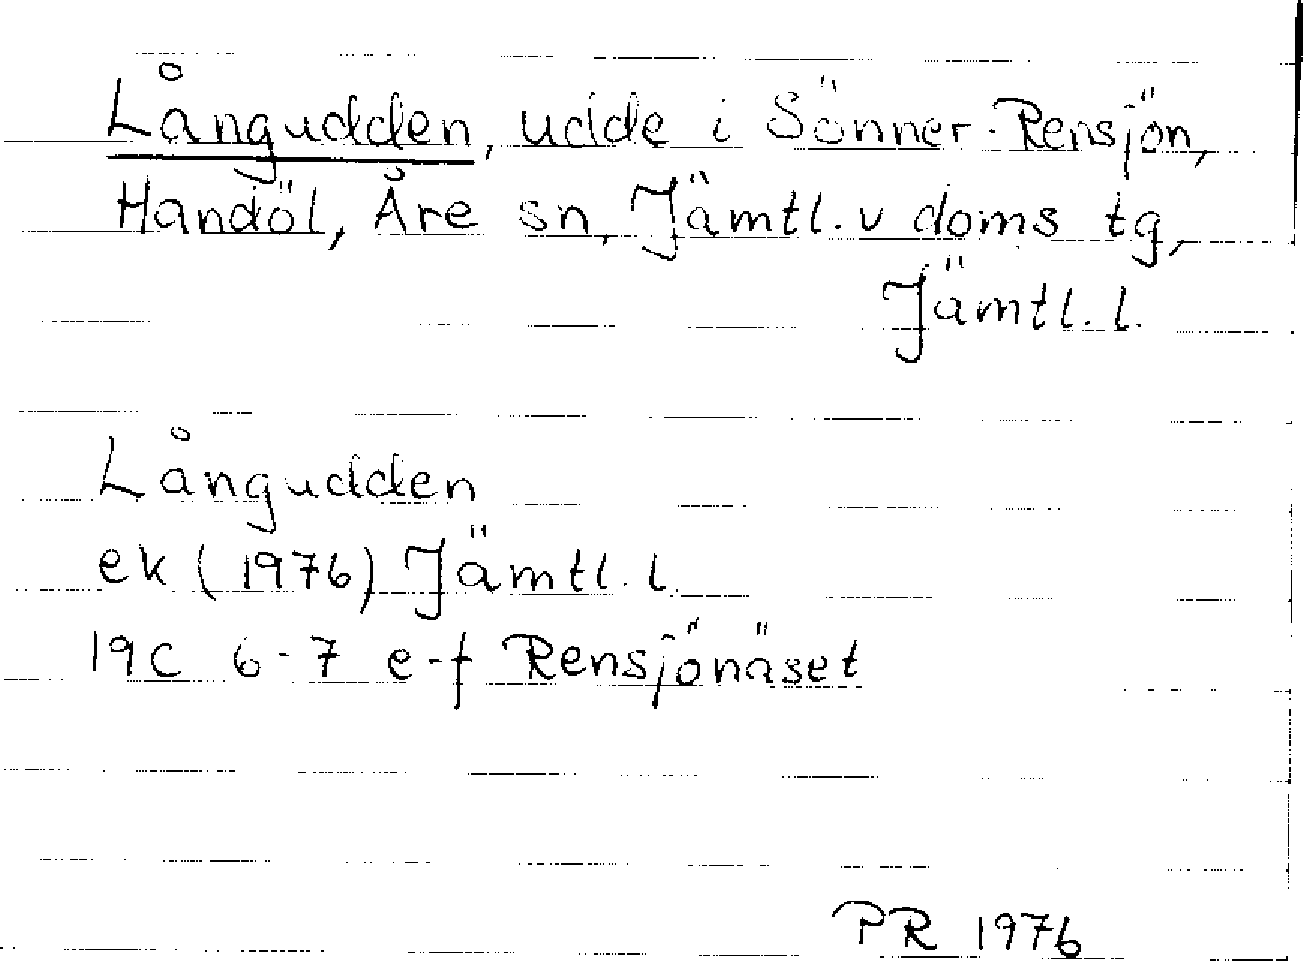 Långudden, udde i Sönner-Rensjön,
Handöl, Åre sn, Jämtl. v doms tg,
Jämtl. l.
Långudden
ek (1976) Jämtl. l.
19C 6-7 e-f Rensjönäset
PR 1976